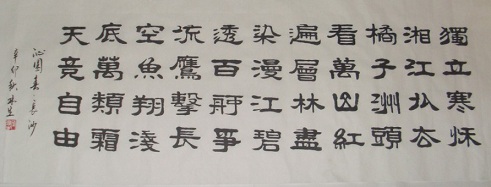 獨立寒秋
湘江北去
橘子洲頭
看萬山紅
遍層林盡
染漫江碧
透百舸爭
流鷹擊長
空魚翔淺
底萬類霜
天竞自由
沁園春長沙
辛卯秋